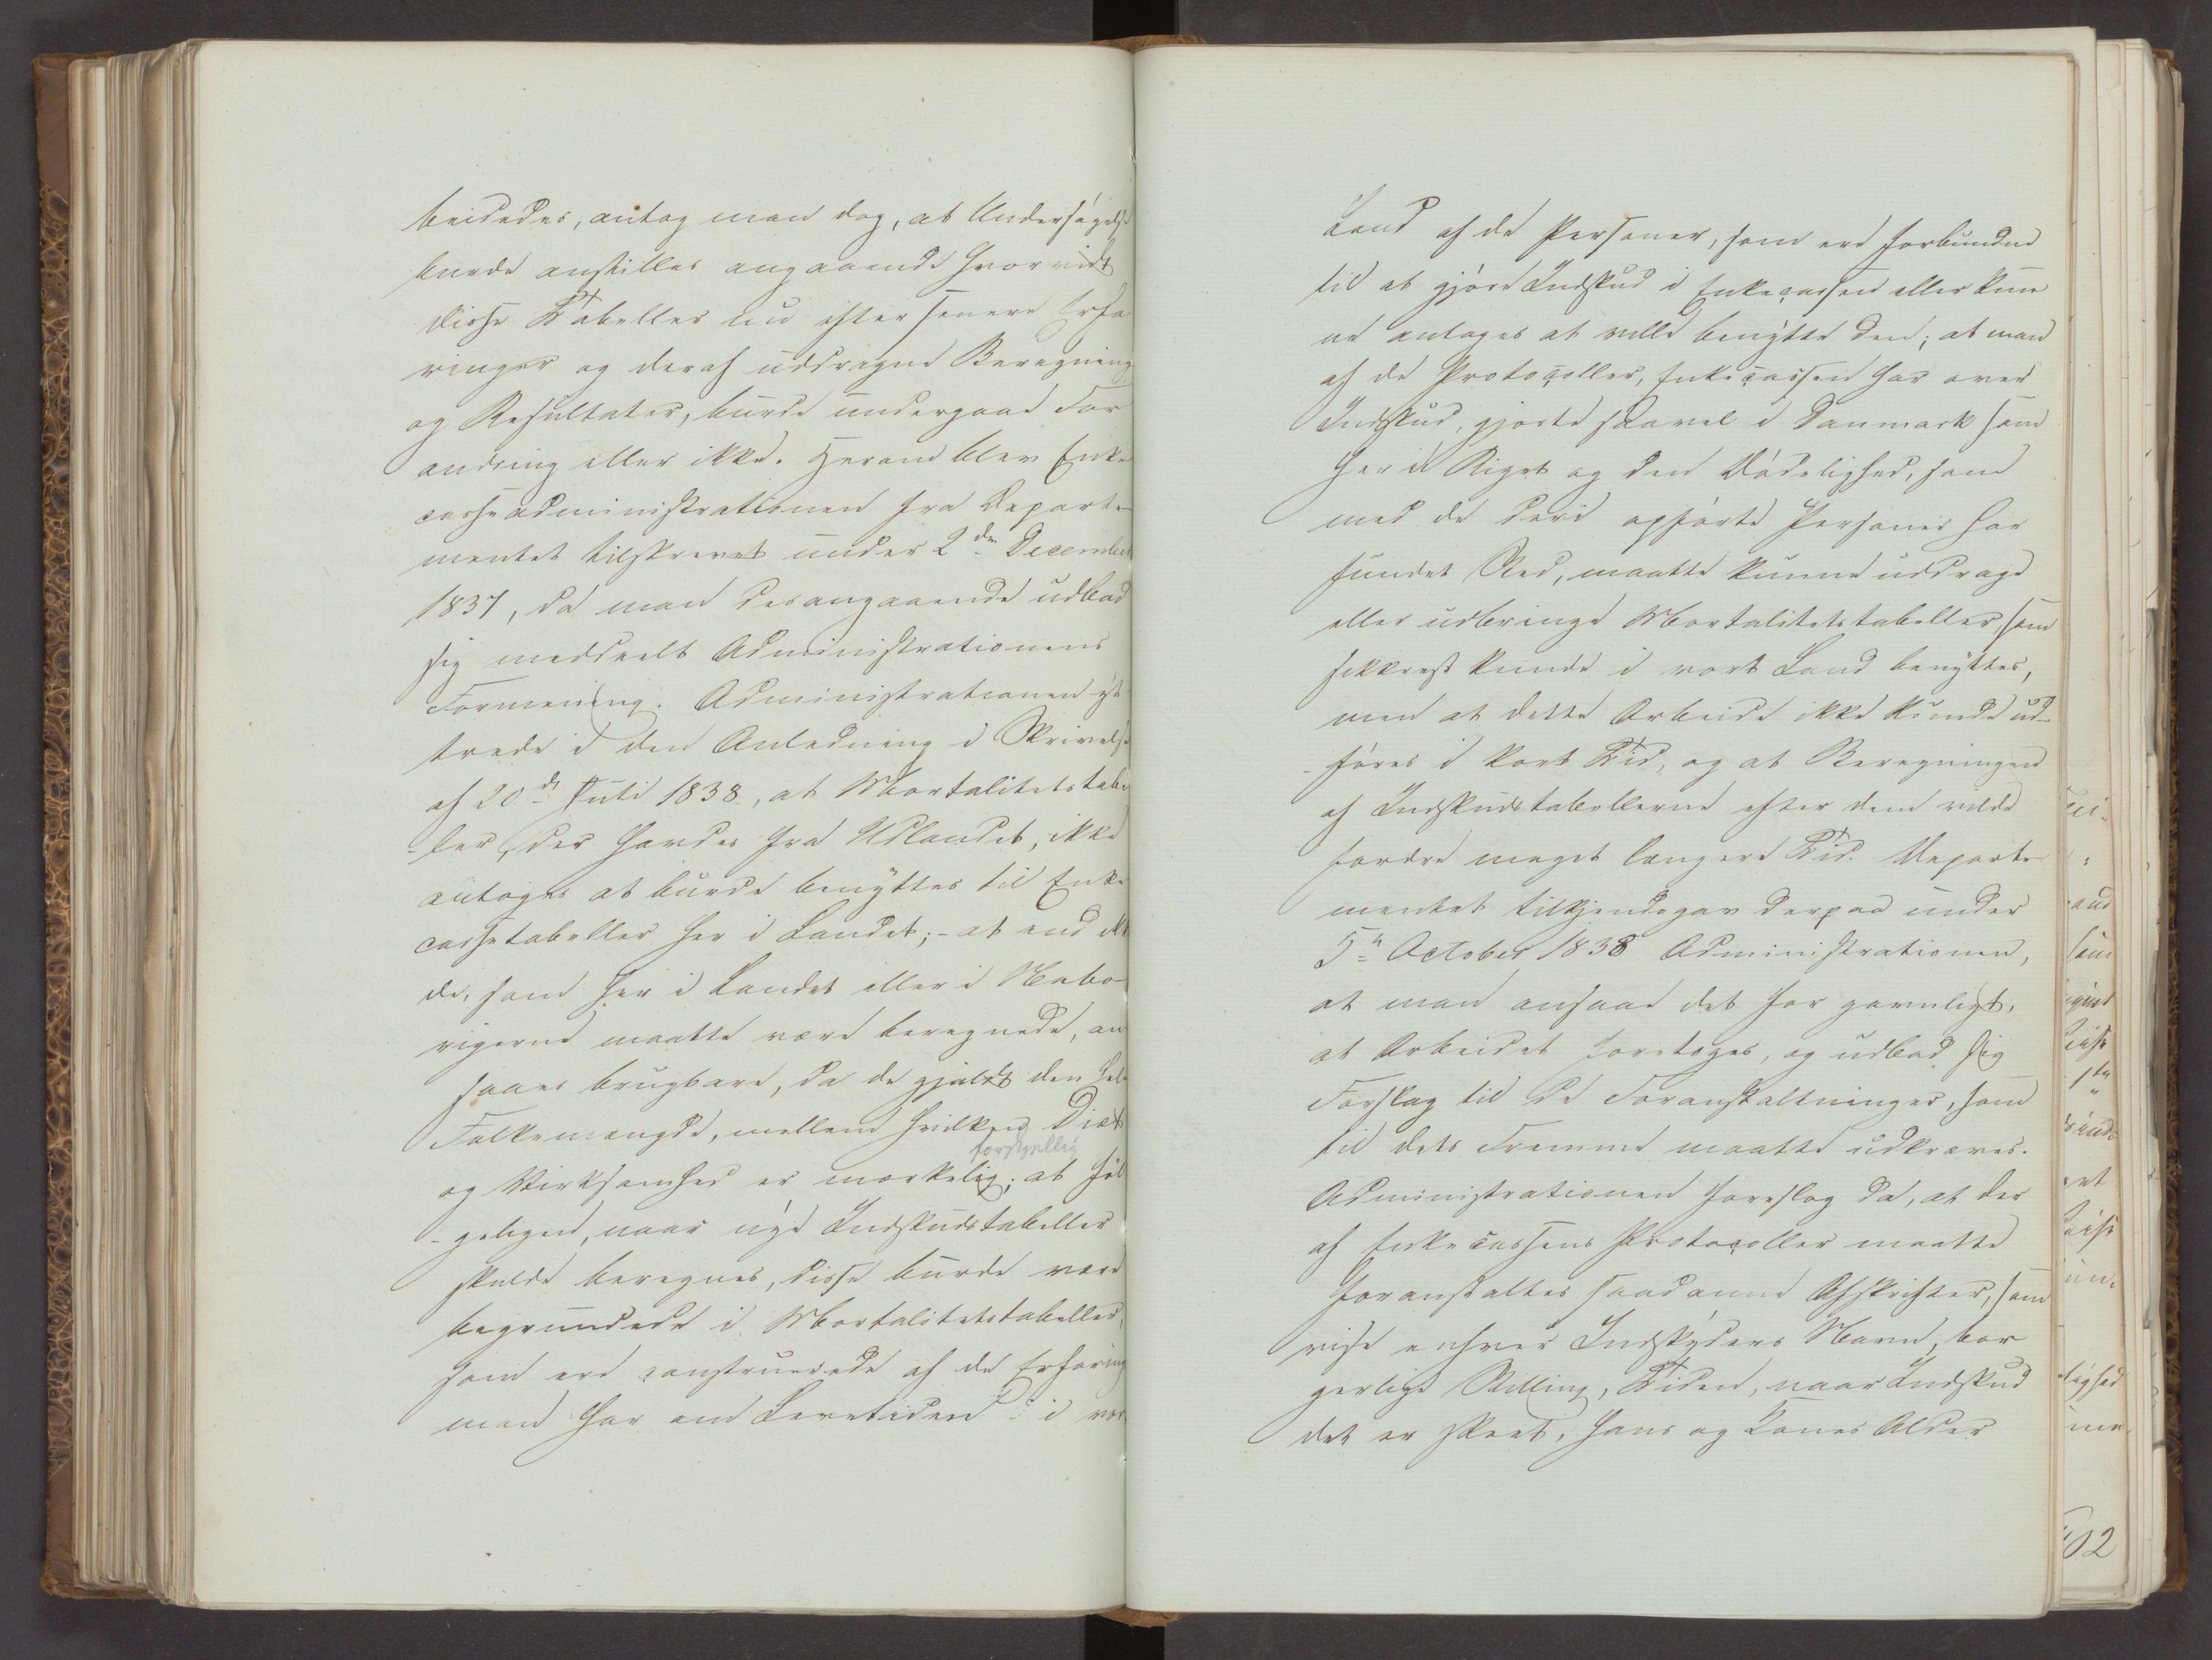 beidedes, antog man dog, at Undersøgelse
burde anstilles angaaende hvorvidt
disse Tabeller nu efter senere Erfa
ringer og deraf uddragne Beregning
og Resultater, burde undergaae For
andring eller ikke. Herom blev Enke
casseadministrationen fra Departe-
mentet tilskrevet under 2den December
1837, da man desangaaende udbad
sig meddeelt Administrationens
Formening. Administrationen yt
trede i den Anledning i Skrivelse
af 20de Juli 1838, at Mortalitetstabel
-ler, der havdes fra Udlandet, ikke
antoges at burde benyttes til Enke
cassetabeller her i Landet; - at end ikke
de, som her i Landet eller i Nabo-
rigerne maatte være beregnede, an
saaes brugbare, da de gjaldt den hele
Folkemængde, mellem hvilkens Diæt
forskjellig
og Virksomhed er mærkelig; at føl
-geligen, naar nye Indskudstabeller
skulde beregnes, disse burde være
begrundede i Mortalitetstabeller,
som ere construerede af de Erfaring
man har om Levetiden i vort
Land af de Personer, som ere forbundne
til at gjøre Indskud i Enkecassen eller kun
ne antages at ville benytte den; at man
af de Protocoller, Enkecassen har over
Indskud, gjorte saavel i Danmark som
her i Riget og den Dødelighed, som
med de deri opførte Personer har
fundet Sted, maatte kunne uddrage
eller udbringe Mortalitetstabeller, som
sikkrest kunde i vort Land benyttes,
men at dette Arbeide ikke kunde ud-
-føres i kort Tid, og at Beregningen
af Indskudstabellerne efter dem vilde
fordre meget længere Tid. Departe-
mentet tilkjendegav derpaa under
5te October 1838 Administrationen,
at man ansaae det for gavnligt,
at Arbeidet foretoges, og udbad sig
Forslag til de Foranstaltninger, som
til dets Fremme maatte udkræves.
Administrationen foreslog da, at der
af Enkecassens Protocoller maatte
foranstaltes saadanne Afskrifter, som
vise enhver Indskyders Navn, bor
gerlige Stilling, Tiden, naar Indskud
det er skeet, hans og Kones Alder